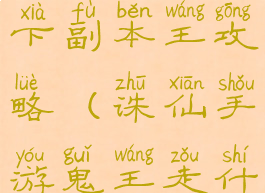 xià fù běn wáng gōng
下副本王攻
lüè zhū xiān shǒu
略（诛仙手
yóu guǐ wáng zǒu shí
游鬼王走什